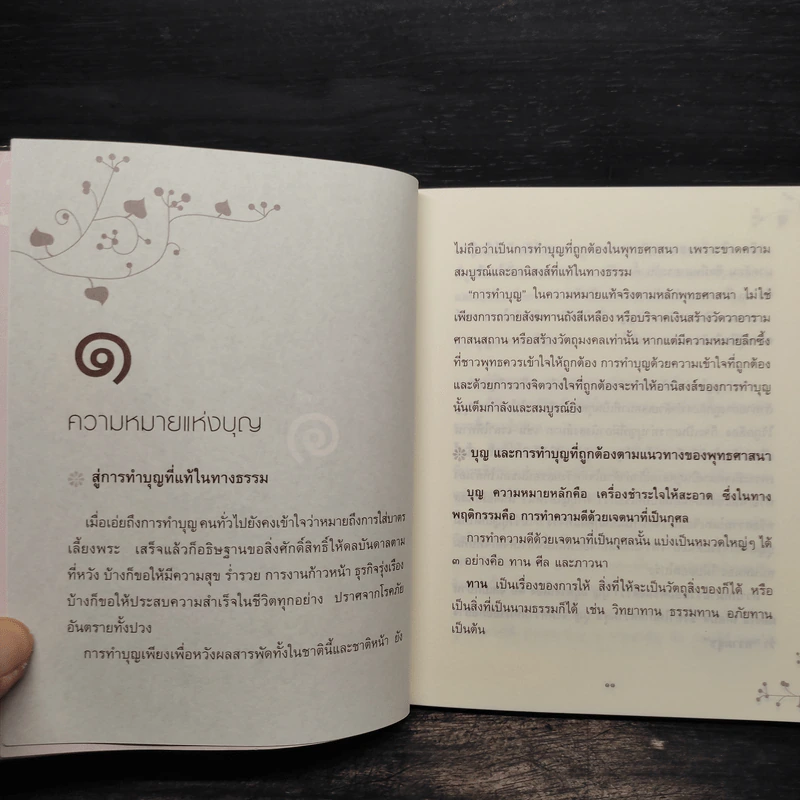 ๑
ความหมายแห่งบุญ
สู่การทำบุญที่แท้ในทางธรรม
เมื่อเอ่ยถึงการทำบุญ คนทั่วไปยังคงเข้าใจว่าหมายถึงการใส่บาตร
เลี้ยงพระ เสร็จแล้วก็อธิษฐานขอสิ่งศักดิ์สิทธิ์ให้ดลบันดาลตาม
ที่หวัง บ้างก็ขอให้มีความสุข ร่ำรวย การงานก้าวหน้า ธุรกิจรุ่งเรือง
บ้างก็ขอให้ประสบความสำเร็จในชีวิตทุกอย่าง ปราศจากโรคภัย
อันตรายทั้งปวง
การทำบุญเพียงเพื่อหวังผลสารพัดทั้งในชาตินี้และชาติหน้า ยัง
ไม่ถือว่าเป็นการทำบุญที่ถูกต้องในพุทธศาสนา เพราะขาดความ
สมบูรณ์และอานิสงส์ที่แท้ในทางธรรม
“การทำบุญ” ในความหมายแท้จริงตามหลักพุทธศาสนา ไม่ใช่
เพียงการถวายสังฆทานถังสีเหลือง หรือบริจาคเงินสร้างวัดวาอาราม
ศาสนสถาน หรือสร้างวัตถุมงคลเท่านั้น หากแต่มีความหมายลึกซึ้ง
ที่ชาวพุทธควรเข้าใจให้ถูกต้อง การทำบุญด้วยความเข้าใจที่ถูกต้อง
และด้วยการวางจิตวางใจที่ถูกต้องจะทำให้อานิสงส์ของการทำบุญ
นั้นเต็มกำลังและสมบูรณ์ยิ่ง
บุญ และการทำบุญที่ถูกต้องตามแนวทางของพุทธศาสนา
บุญ ความหมายหลักคือ เครื่องชำระใจให้สะอาด ซึ่งในทาง
พฤติกรรมคือ การทำความดีด้วยเจตนาที่เป็นกุศล
การทำความดีด้วยเจตนาที่เป็นกุศลนั้น แบ่งเป็นหมวดใหญ่ๆ ได้
๓ อย่างคือ ทาน ศีล และภาวนา
ทาน เป็นเรื่องของการให้ สิ่งที่ให้จะเป็นวัตถุสิ่งของก็ได้ หรือ
เป็นสิ่งที่เป็นนามธรรมก็ได้ เช่น วิทยาทาน ธรรมทาน อภัยทาน
เป็นต้น